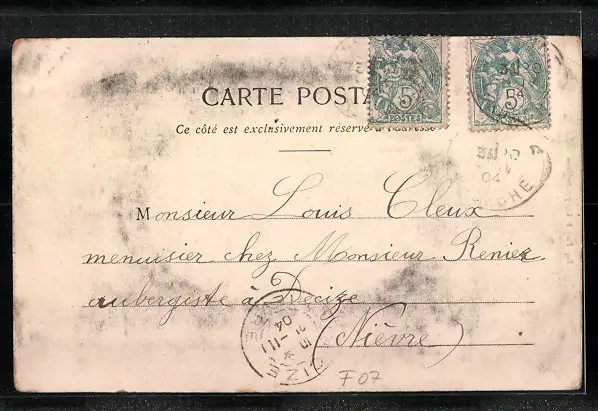 CARTE POSTA
Ce côté est exclusivement réservé à l'adresse
5c
POSTES
5c
Monsieur Louis Cleux
menuisier chez Monsieur Renier
aubergiste à Decize
(Nièvre)
04
04
F07